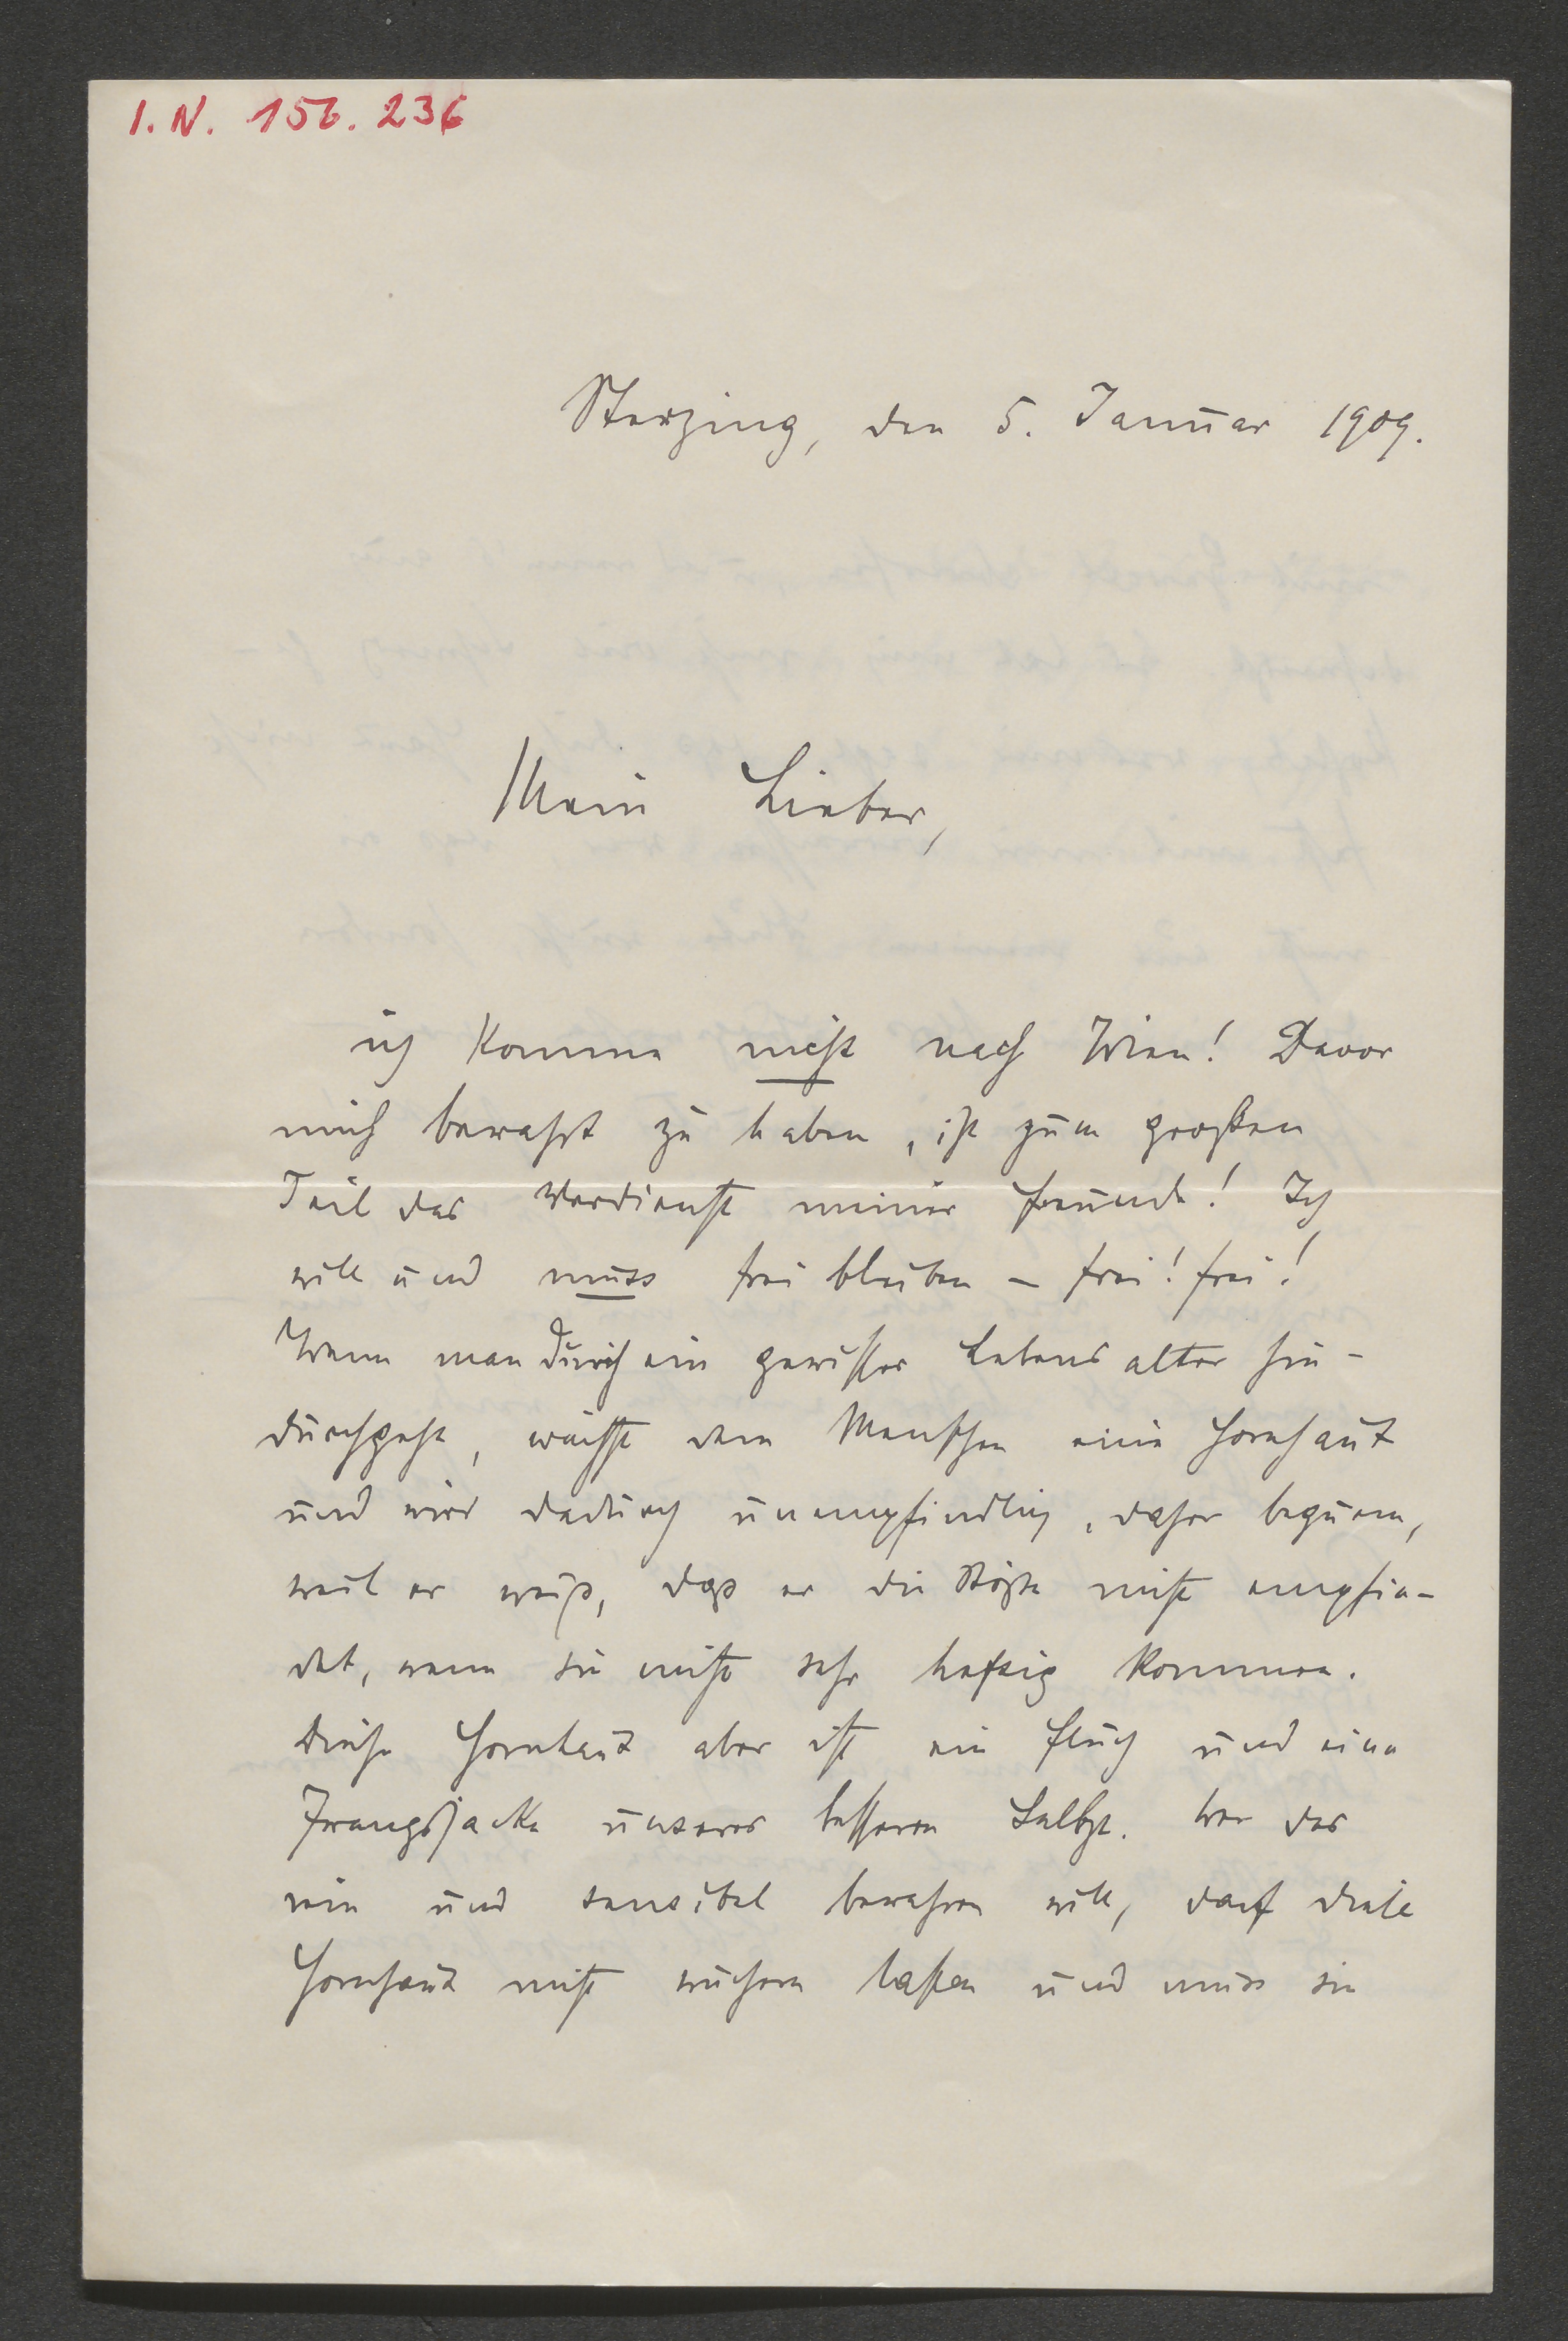 I. N. 156.236
Sterzing, den 5. Januar 1909.
Mein Lieber,
ich komme nicht nach Wien! Davor
mich bewahrt zu haben, ist zum großen
Teil das Verdienst meiner Freunde! Ich
will und muss frei bleiben – frei! frei!
Wenn man durch ein gewisses Lebensalter hin-
durchgeht, wächst dem Menschen eine Hornhaut
und wird dadurch unempfindlich, daher bequem,
weil er weiß, daß er die Stöße nicht empfin-
det, wenn sie nicht sehr heftig kommen.
Diese Hornhaut aber ist ein Fluch und eine
Zwangsjacke unseres besseren Selbst. Wer das
rein und sensibel bewahren will, darf diese
Hornhaut nicht wuchern lassen und muss sie